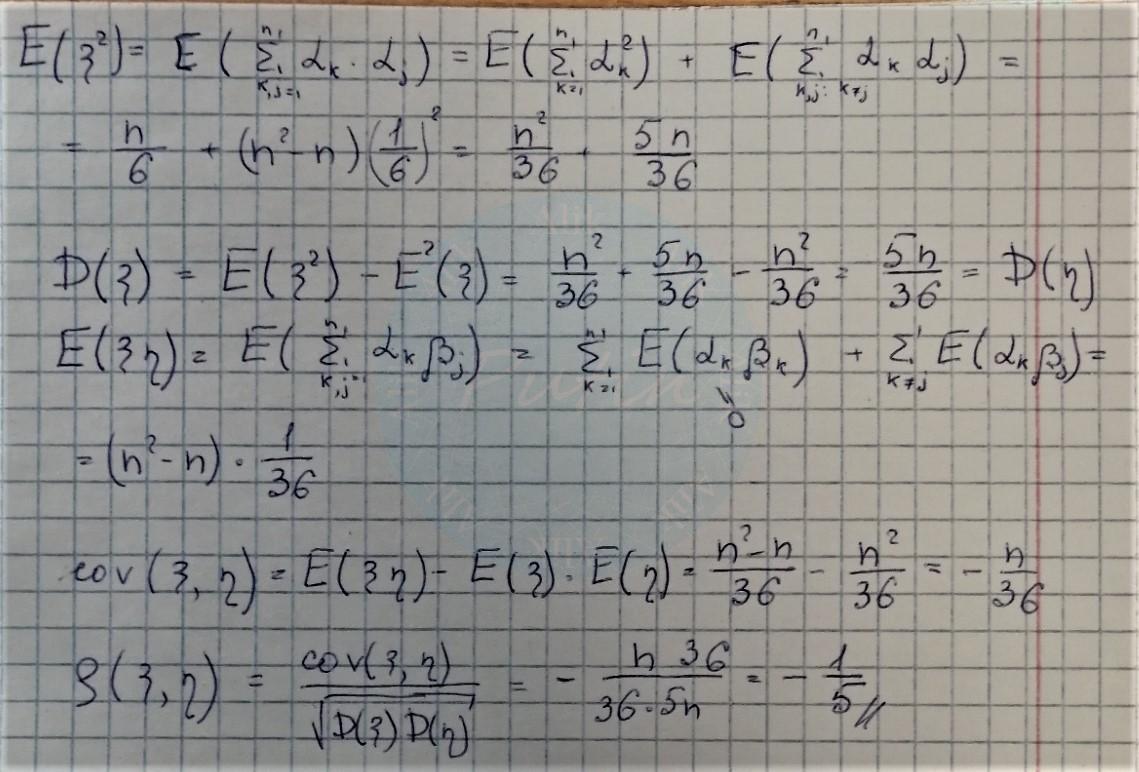 E(ξ²) = E(∑ₖ,ⱼ₌₁ⁿ αₖ · αⱼ) = E(∑ₖ₌₁ⁿ αₖ²) + E(∑ₖ,ⱼ: ₖ≠ⱼⁿ αₖ αⱼ) =
= n/6 + (n² - n)(1/6)² = n²/36 + 5n/36
D(ξ) = E(ξ²) - E²(ξ) = n²/36 + 5n/36 - n²/36 = 5n/36 = D(η)
E(ξη) = E(∑ₖ,ⱼ₌₁ⁿ αₖβⱼ) = ∑ₖ₌₁ⁿ E(αₖβₖ) + ∑ₖ≠ⱼ E(αₖβⱼ) =
0
= (n² - n) · 1/36
cov(ξ, η) = E(ξη) - E(ξ) · E(η) = (n² - n)/36 - n²/36 = - n/36
ρ(ξ, η) = cov(ξ, η)/√(D(ξ) D(η)) = - (n 36)/(36 · 5n) = - 1/5 //